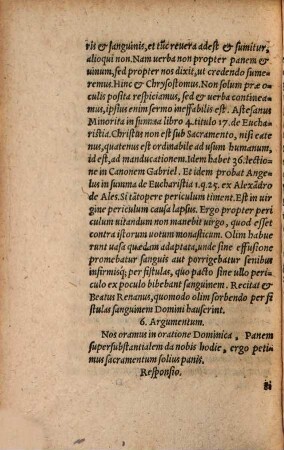 ris & sanguinis, et tũc revera adest & sumitur,
alioqui non. Nam uerba non propter panem &
uinum, sed propter nos dixit, ut credendo sume-
remus. Hinc & Chrysostomus. Non solum præ o-
culis posita respiciamus, sed & uerba continea-
mus, ipsius enim sermo ineffabilis est. Astesanus
Minorita in summa libro 4. titulo 17. de Eucha-
ristia. Christus non est sub Sacramento, nisi eate-
nus, quatenus est ordinabile ad usum humanum,
id est, ad manducationem. Idem habet 36. lectio-
ne in Canonem Gabriel. Et idem probat Ange-
lus in summa de Eucharistia 1. q. 25. ex Alexãdro
de Ales. Si tãtopere periculum timent. Est in uir-
gine periculum causa lapsus. Ergo propter peri
culum uitandum non manebit uirgo, quod esset
contra istorum uotum monasticum. Olim habue
runt uasa quædam adaptata, unde sine effusione
promebatur sanguis aut porrigebatur senibus
infirmisq; per fistulas, quo pacto sine ullo peri-
culo ex poculo bibebant sanguinem. Recitat &
Beatus Renanus, quomodo olim sorbendo per fi
stulas sanguinem Domini hauserint.
6. Argumentum.
Nos oramus in oratione Dominica, Panem
supersubstantialem da nobis hodie, ergo peti-
mus sacramentum solius panis.
Responsio.